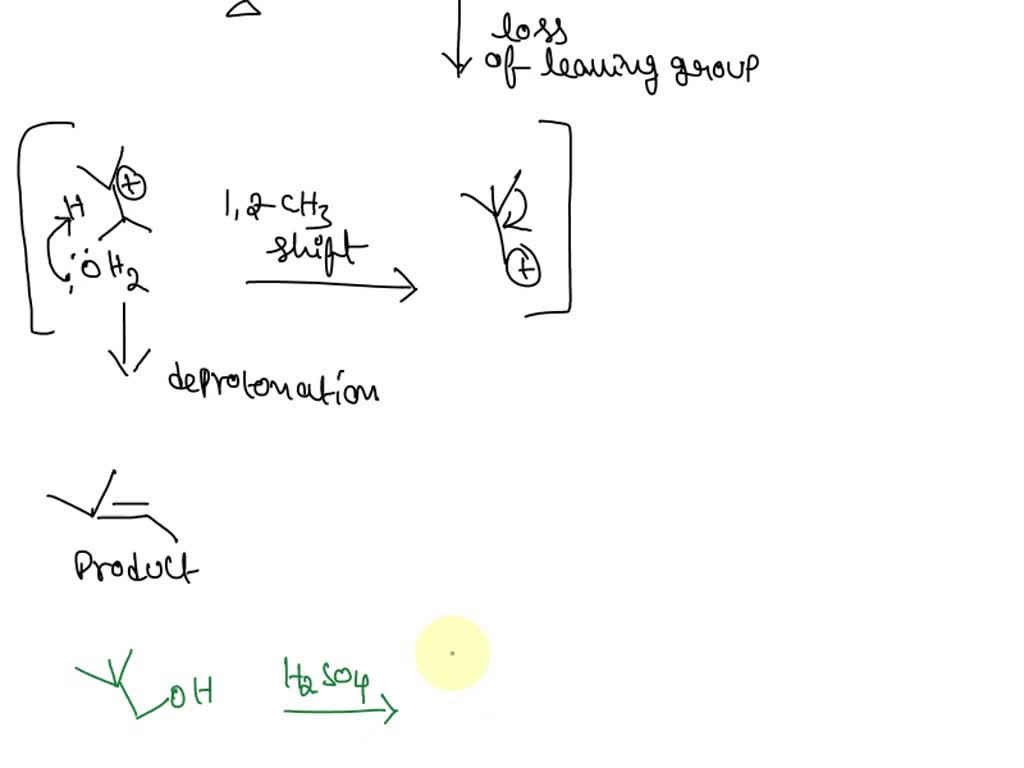 loss
of leaving group
H
+
:ÖH2
1,2-CH3
shift
+
deprotonation
Product
OH
H2SO4